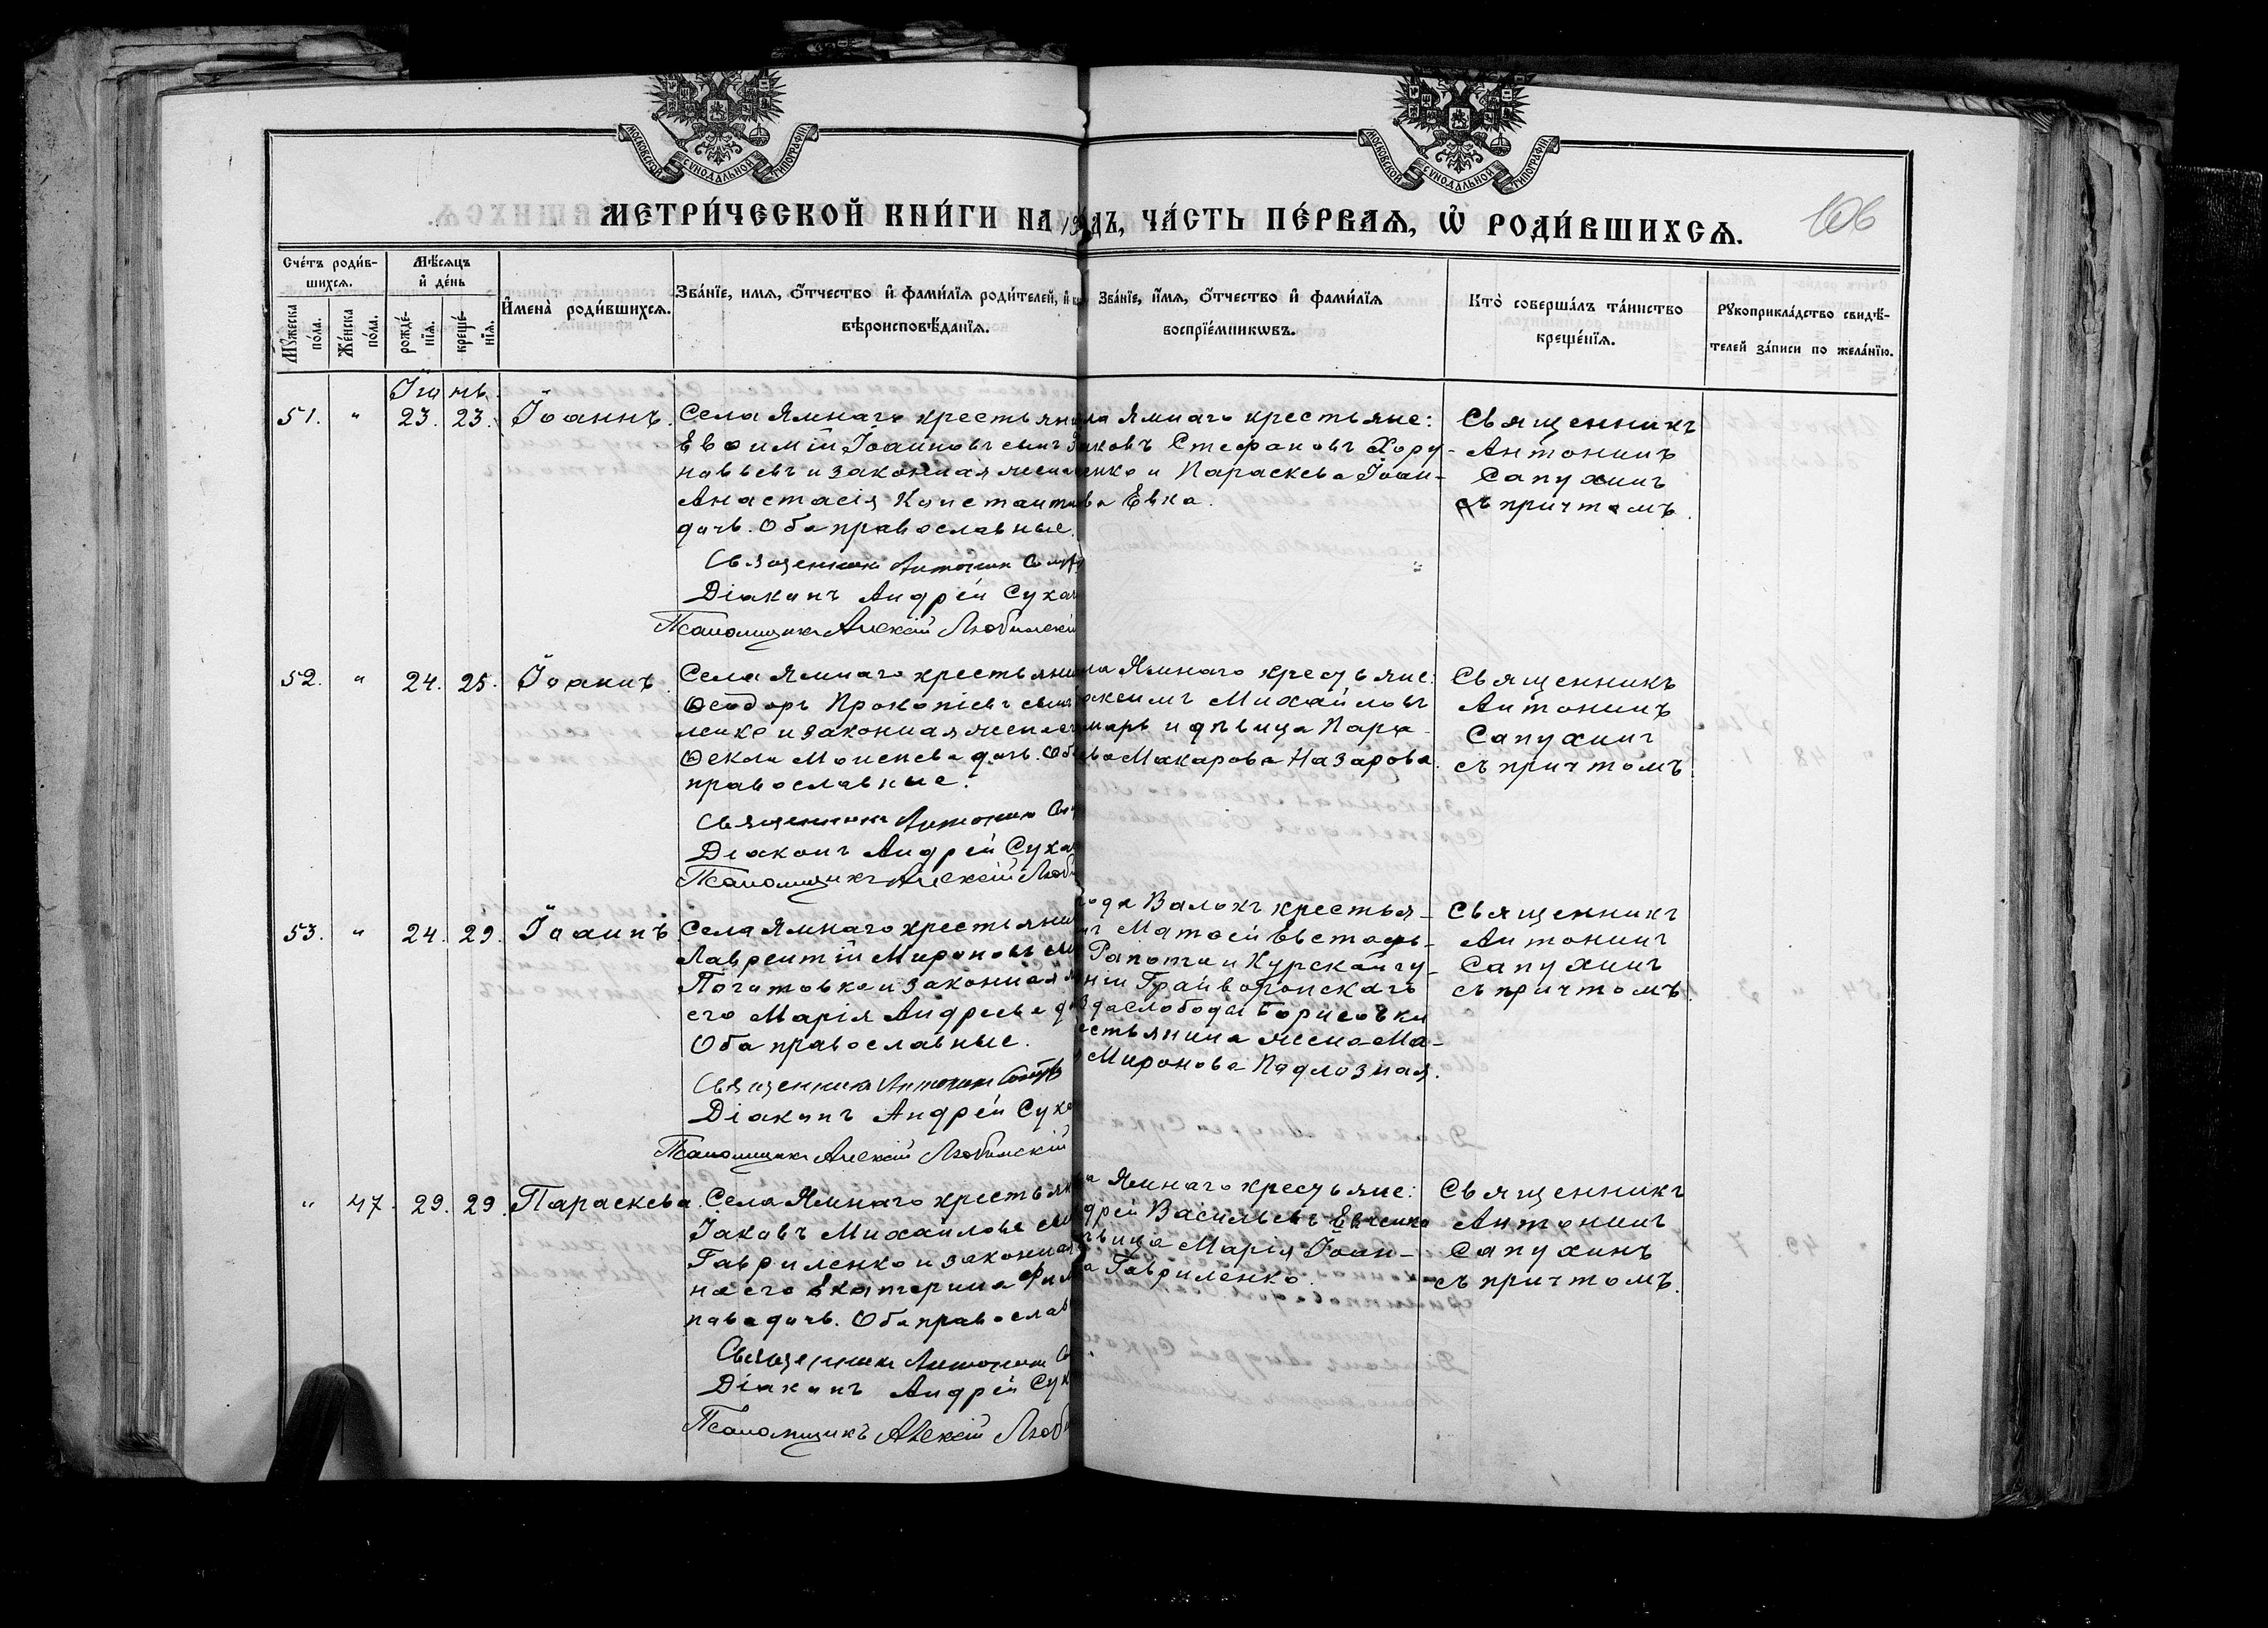 МОСКОВСКОЙ СУНОДАЛЬНОЙ ТИПОГРАФІИ
МОСКОВСКОЙ СУНОДАЛЬНОЙ ТИПОГРАФІИ
МЕТРИ́ЧЕСКОЙ КНИ́ГИ НА 19 ДЪ, ЧА́СТЬ ПЕ́РВАѦ, Ѡ҆ РОДИ́ВШИХСѦ.
106
Сче́тъ роди́в-
шихсѧ.
Мꙋжеска по́ла.
Же́нска по́ла.
Мѣ́сѧцъ
и҆ де́нь
рожде́-
нїѧ.
креще́-
нїѧ.
И҆мена̀ роди́вшихсѧ.
Зва́нїе, имѧ, ѻ҆́тчество и҆ фами́лїѧ роди́телей, и҆
вѣроисповѣ́данїѧ.
Зва́нїе, и҆́мѧ, ѻ҆́тчество и҆ фами́лїѧ
воспрїе́мникѡвъ.
Кто̀ соверша́лъ та́инство
креще́нїѧ.
Рꙋкоприкла́дство свидѣ́-
телей за́писи по жела́нїю.
Іюнь.
51. " 23. 23. Іоаннъ.
Села Ямнаго крестьяни
Евѳимій Іоанновъ сынъ
новьевъ и законная жена
Анастасія Константи
дочь. Оба православные.
Священникъ Антонин Сапу
Діаконъ Андрей Сухан
Псаломщикъ Алексій Любимскій
ла Ямнаго крестьяне:
Іаковъ Стефановъ Хору-
ленко и Параскева Іоан-
ва Евка.
Священникъ
Антонинъ
Сапухинъ
съ причтомъ.
52. " 24. 25. Іоаннъ.
Села Ямнаго крестьяни
Ѳеодоръ Прокопіевъ сынъ
ленко и законная жена его
Ѳекла Моисеева дочь. Оба
православные.
Священникъ Антонин Сап
Діаконъ Андрей Суха
Псаломщикъ Алексій Люби
ла Ямнаго крестьяне:
аксимъ Михайловъ
марь и дѣвица Пара-
ева Макарова Назарова.
Священникъ
Антонинъ
Сапухинъ
съ причтомъ.
53. " 24. 29. Іоаннъ
Села Ямнаго крестьянин
Лаврентій Мироновъ сын
Логатовка и законная ж
его Марія Андреева до
Оба православные.
Священникъ Антонин Сапух
Діаконъ Андрей Суха
Псаломщикъ Алексій Любимскій
рода Валокъ крестья-
нъ Матѳей Евстафь-
Рапота и Курской гу-
ніи Грайворонскаго
зда слободы Борисовки
естьянина жена Ма-
Миронова Подлозная.
Священникъ
Антонинъ
Сапухинъ
съ причтомъ.
" 47. 29. 29. Параскева.
Села Ямнаго крестьян
Іаковъ Михайловъ сын
Гавриленко и законная
на его Екатерина Фил
пова дочь. Оба православ
Священникъ Антонин Са
Діаконъ Андрей Сух
Псаломщикъ Алексій Люби
а Ямнаго крестьяне:
дрей Васильевъ Евченко
ѣвица Марія Іоан-
а Гавриленко.
Священникъ
Антонинъ
Сапухинъ
съ причтомъ.